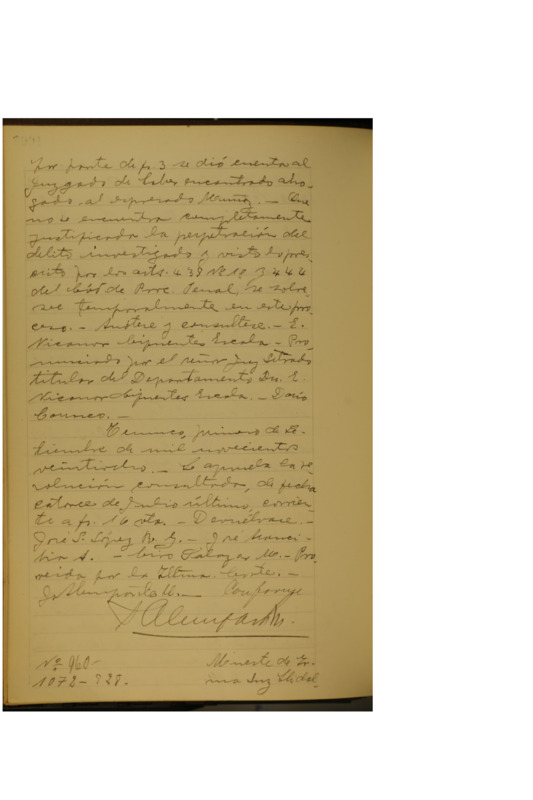 por parte de fs. 3 se dió cuenta al
Juzgado de haber encontrado aho-
gado al expresado Muñoz. — Que
no se encuentra completamente
justificada la perpetración del
delito investigado y visto lo pres-
crito por los arts. 438 Nº 1º y 444
del Cód. de Proc. Penal, se sobre-
see temporalmente en este pro-
ceso. — Anótese y consúltese. — E.
Nicanor Cifuentes Escala. — Pro-
nunciado por el señor Juez Letrado
titular del Departamento Don E.
Nicanor Cifuentes Escala. — Darío
Temuco, primero de Se-
tiembre de mil novecientos
— Se aprueba la re-
solución consultada, de fecha
catorce de Julio último, corrien-
te a fs. 16 vta. — Devuélvase. —
José S. López — José
— Pro-
veída por la Iltma. Corte. —
Conforme
Nº 960.-
1072 — 328.
Muerte de
Luz